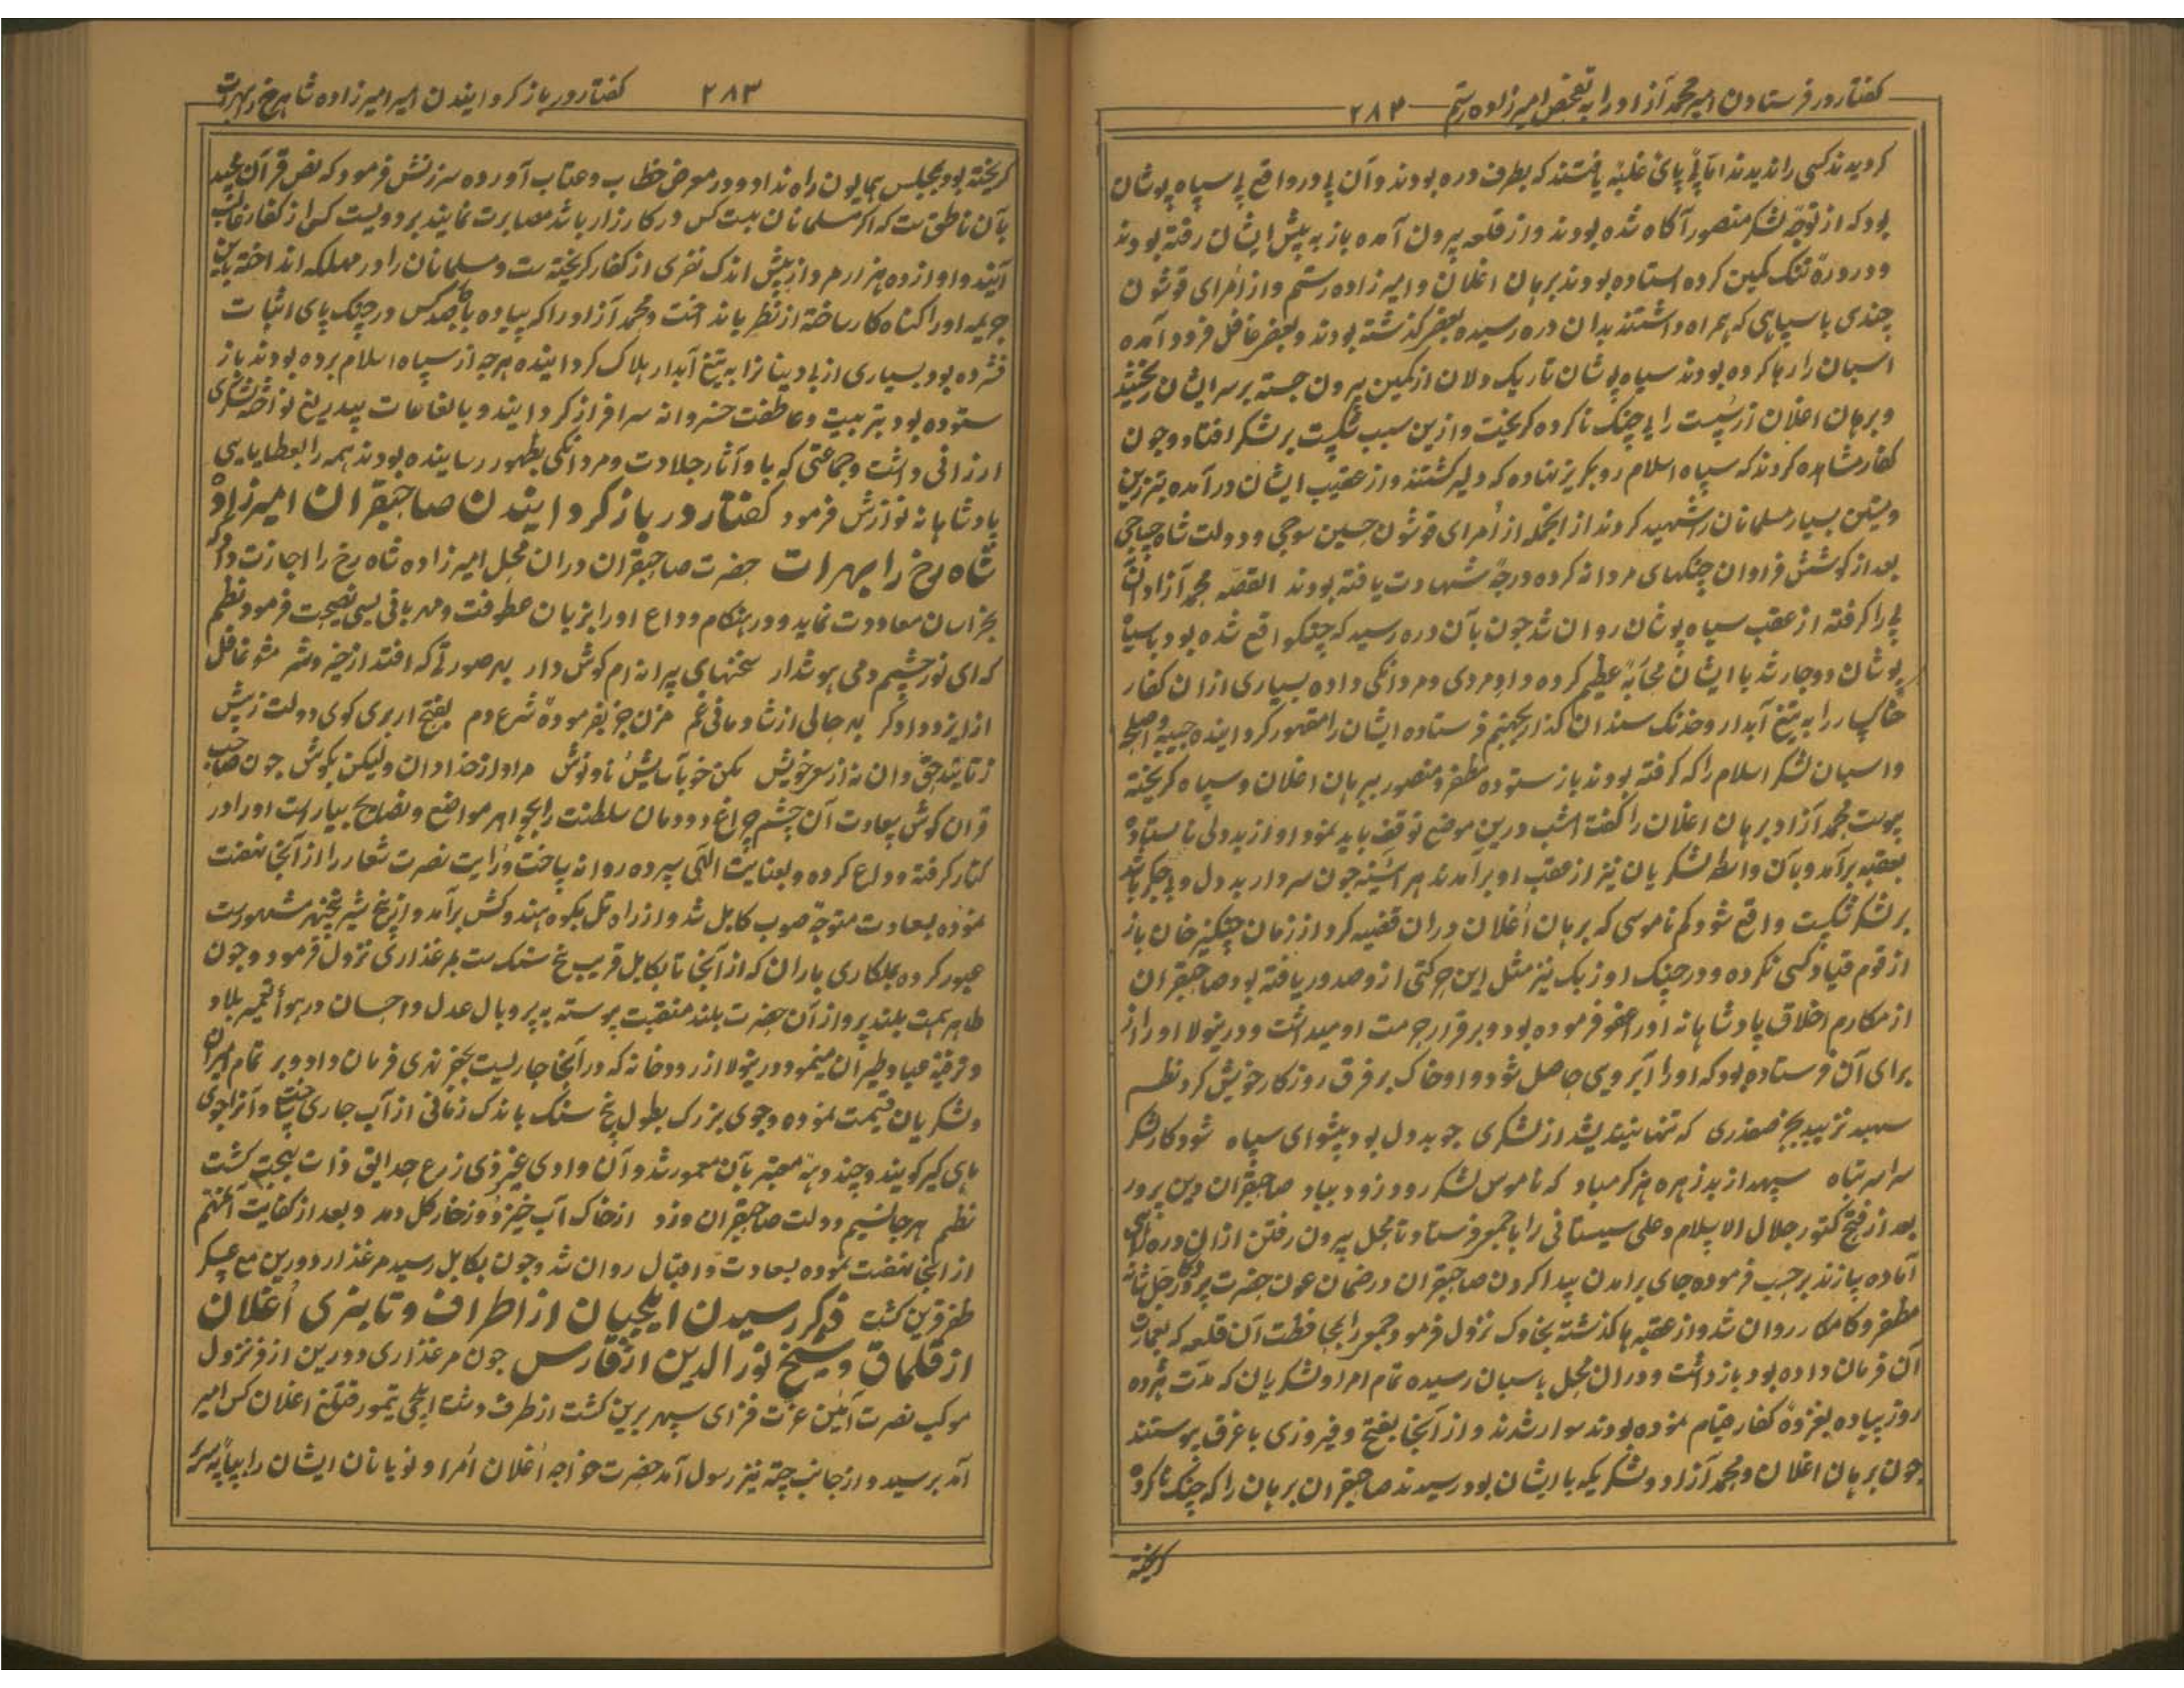 گفتار در فرستادن امیر محمد آزاد را به تفحص امیرزاده رستم ۲۸۲
کردیدند کسی را ندیدند اما پی پای غلبه یافتند که بطرف دره بودند و آن پی در واقع پی سیاه پوشان
بود که از توجه لشکر منصور آگاه شده بودند و از قلعه بیرون آمده باز به پیش ایشان رفته بودند
و در دره تنگ کمین کرده استاده بودند برهان اغلان و امیرزاده رستم و از امرای قوشون
چندی با سپاهی که همراه داشتند بدان دره رسیده بعضی گذشته بودند و بعضی غافل فرود آمده
اسبان را رها کرده بودند سیاه پوشان تاریک دلان از کمین بیرون جسته بر سر ایشان ریختند
و برهان اغلان از سستی رای جنگ ناکرده گریخت و ازین سبب شکست بر لشکر افتاد و چون
کفار مشاهده کردند که سپاه اسلام رو بگریز نهاده که دلیر گشتند و از عقیب ایشان درآمده بتبرزین
بسیار مسلمانان را شهید کردند از انجمله از امرای قوشون حسین سوجی و دولت شاه جباجی
بعد از کوشش فراوان جنگهای مردانه کرده درجه شهادت یافته بودند القصه محمد آزاد آن
پی را گرفته از عقب سیاه پوشان روان شد چون بآن دره رسید که جنگ واقع شده بود با سیاه
پوشان دوچار شد با ایشان محاربه عظیم کرده داد مردی و مردانگی داده بسیاری ازان کفار
خاکسار را به تیغ آبدار و خدنگ سندان گذار بجهنم فرستاده ایشان را مقهور گردانیده جیبه و اسلحه
و اسبان لشکر اسلام را که گرفته بودند باز ستوده مظفر و منصور ببرهان اغلان و سپاه گریخته
پیوست محمد آزاد برهان اغلان را گفت امشب درین موضع توقف باید نمود او از بددلی نا ستاد
بعقبه برآمد و بآن واسطه لشکریان نیز از عقب او برآمدند هر آئینه چون سردار بددل و بی جگر باشد
بر لشکر شکست واقع شود کم ناموسی که برهان اغلان دران قضیه کرد از زمان چنگیز خان باز
از قوم قیاد کسی نکرده و در جنگ اوزبک نیز مثل این حرکتی ازو صدور یافته بود صاحبقران
از مکارم اخلاق پادشاهانه او را عفو فرموده بود و برقرار حرمت او میداشت و درینولا او را از
برای آن فرستاده بود که او را آبرویی حاصل شود و او خاک بر فرق روزگار خویش کرد نظم
سپهبد نزیبد بجز صفدری که تنها نیندیشد از لشکری چو بددل بود پیشوای سپاه شود کار لشکر
سراسر تباه سپهدار بدزهره هرگز مباد که ناموس لشکر رود زو بباد صاحبقران دین پرور
بعد از فتح کتور جلال الاسلام و علی سیستانی را با جمعی فرستاد تا محل بیرون رفتن ازان دره
آماده سازند بر حسب فرموده جای برآمدن پیدا کردن صاحبقران در ضمان عون حضرت پروردگار جل شانه
مظفر و کامکار روان شد و از عقبه ها گذشته بخاوک نزول فرمود و جمعی را بمحافظت آن قلعه که بعمارت
آن فرمان داده بود بازداشت و دران محل باسبان رسیده تمام امرا و لشکریان که مدت هژده
روز پیاده بغزوه کفار قیام نموده بودند سوار شدند و از آنجا بفتح و فیروزی باغرق پیوستند
چون برهان اغلان و محمد آزاد و لشکریکه با ایشان بود رسیدند صاحبقران برهان را که جنگ ناکرده
گریخته
گفتار در باز گردانیدن امیر امیرزاده شاهرخ را بهرات ۲۸۳
گریخته بود بمجلس همایون راه نداد و در معرض خطاب و عتاب آورده سرزنش فرمود که نص قرآن مجید
بآن ناطق ست که اگر مسلمانان بیست کس در کارزار باشد مصابرت نمایند بر دویست کس از کفار غالب
آیند و او از ده هزار مرد از پیش اندک نفری از کفار گریخته ست و مسلمانان را در مهلکه انداخته باین
جریمه او را گناهکار ساخته از نظر بینداخت و محمد آزاد را که پیاده با چهارصد کس در جنگ پای اثبات
فشرده بود بسیاری از بی دینانرا به تیغ آبدار هلاک گردانیده هرچه از سپاه اسلام برده بودند باز
ستوده بود بتربیت و عاطفت خسروانه سرافراز گردانید و بانعامات بیدریغ نواخته لشکری
ارزانی داشت و جماعتی که با او آثار جلادت و مردانگی بظهور رسانیده بودند همه را بعطایای
پادشاهانه نوازش فرمود گفتار در باز گردانیدن صاحبقران امیرزاده
شاه رخ را بهرات حضرت صاحبقران دران محل امیرزاده شاه رخ را اجازت داد که
بخراسان معاودت نماید و در هنگام وداع او را بزبان عطوفت و مهربانی بسی نصیحت فرمود نظم
که ای نور چشم دمی هوش دار سخنهای پیرانه ام گوش دار بهر صورتی که افتد از خیر و شر مشو غافل
از ایزد دادگر بهر حالی از شادمانی و غم مزن جز بفرموده شرع دم بفتح ار بری گوی دولت ز پیش
ز تایید حق دان نه از سعی خویش مکن خو بآسایش و ناونوش مراد از خدا دان ولیکن بکوش چون صاحب
قران گوش سعادت آن چشم چراغ دودمان سلطنت را بجواهر مواضع و نصایح بیاراست او را در
کنار گرفته وداع کرده و بعنایت الهی سپرده روانه ساخت و رایت نصرت شعار را از آنجا نهضت
نموده بسعادت متوجه صوب کابل شد و از راه تل بکوه هندوکش برآمد و از پنج شیر بپنجهیر مشهورست
عبور کرده بجلکای باران که از آنجا تا بکابل قریب پنج سنک ست بمرغذاری نزول فرمود و چون
طایر همت بلند پرواز آن حضرت بلند منقبت پیوسته به پر و بال عدل و احسان در هوای تعمیر بلاد
و ترفیه عباد طیران مینمود درینولا از رودخانه که در آنجا جاریست بحفر نهری فرمان داد و بر تمام امیران
و لشکریان قسمت نموده جوی بزرگ بطول پنج سنک باندک زمانی از آب جاری ساخته و آنرا جوی
ماهی گیر گویند و چند دیه معتبر بآن معمور شد و آن وادی غیر ذی زرع حدایق ذات بهجت گشت
نظم هر جا نسیم دولت صاحبقران وزد از خاک آب خیزد و از خار گل دمد و بعد از کفایت آن مهم
از آنجا نهضت نموده بسعادت و اقبال روان شد و چون بکابل رسید مرغذار دورین مع عسکر
ظفر قرین گشت ذکر رسیدن ایلچیان از اطراف و تایزی اغلان
از قلماق و شیخ نورالدین از فارس چون مرغذاری دورین از فر نزول
موکب نصرت آیین عزت فزای سپهر برین گشت از طرف دشت ایلچی تیمور قتلغ اغلان کس امیر
آمد برسید و از جانب چته نیز رسول آمد حضرت خواجه اغلان امرا و نویانان ایشان را بپایه سریر